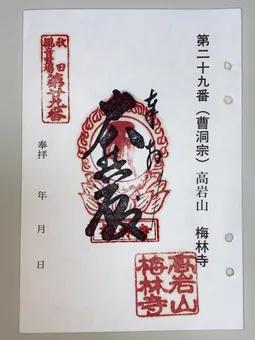 第二十九番（曹洞宗）高岩山　梅林寺
奉拝
秋田
観音霊場
第廿九番
奉拝　年　月　日
高岩山
梅林寺